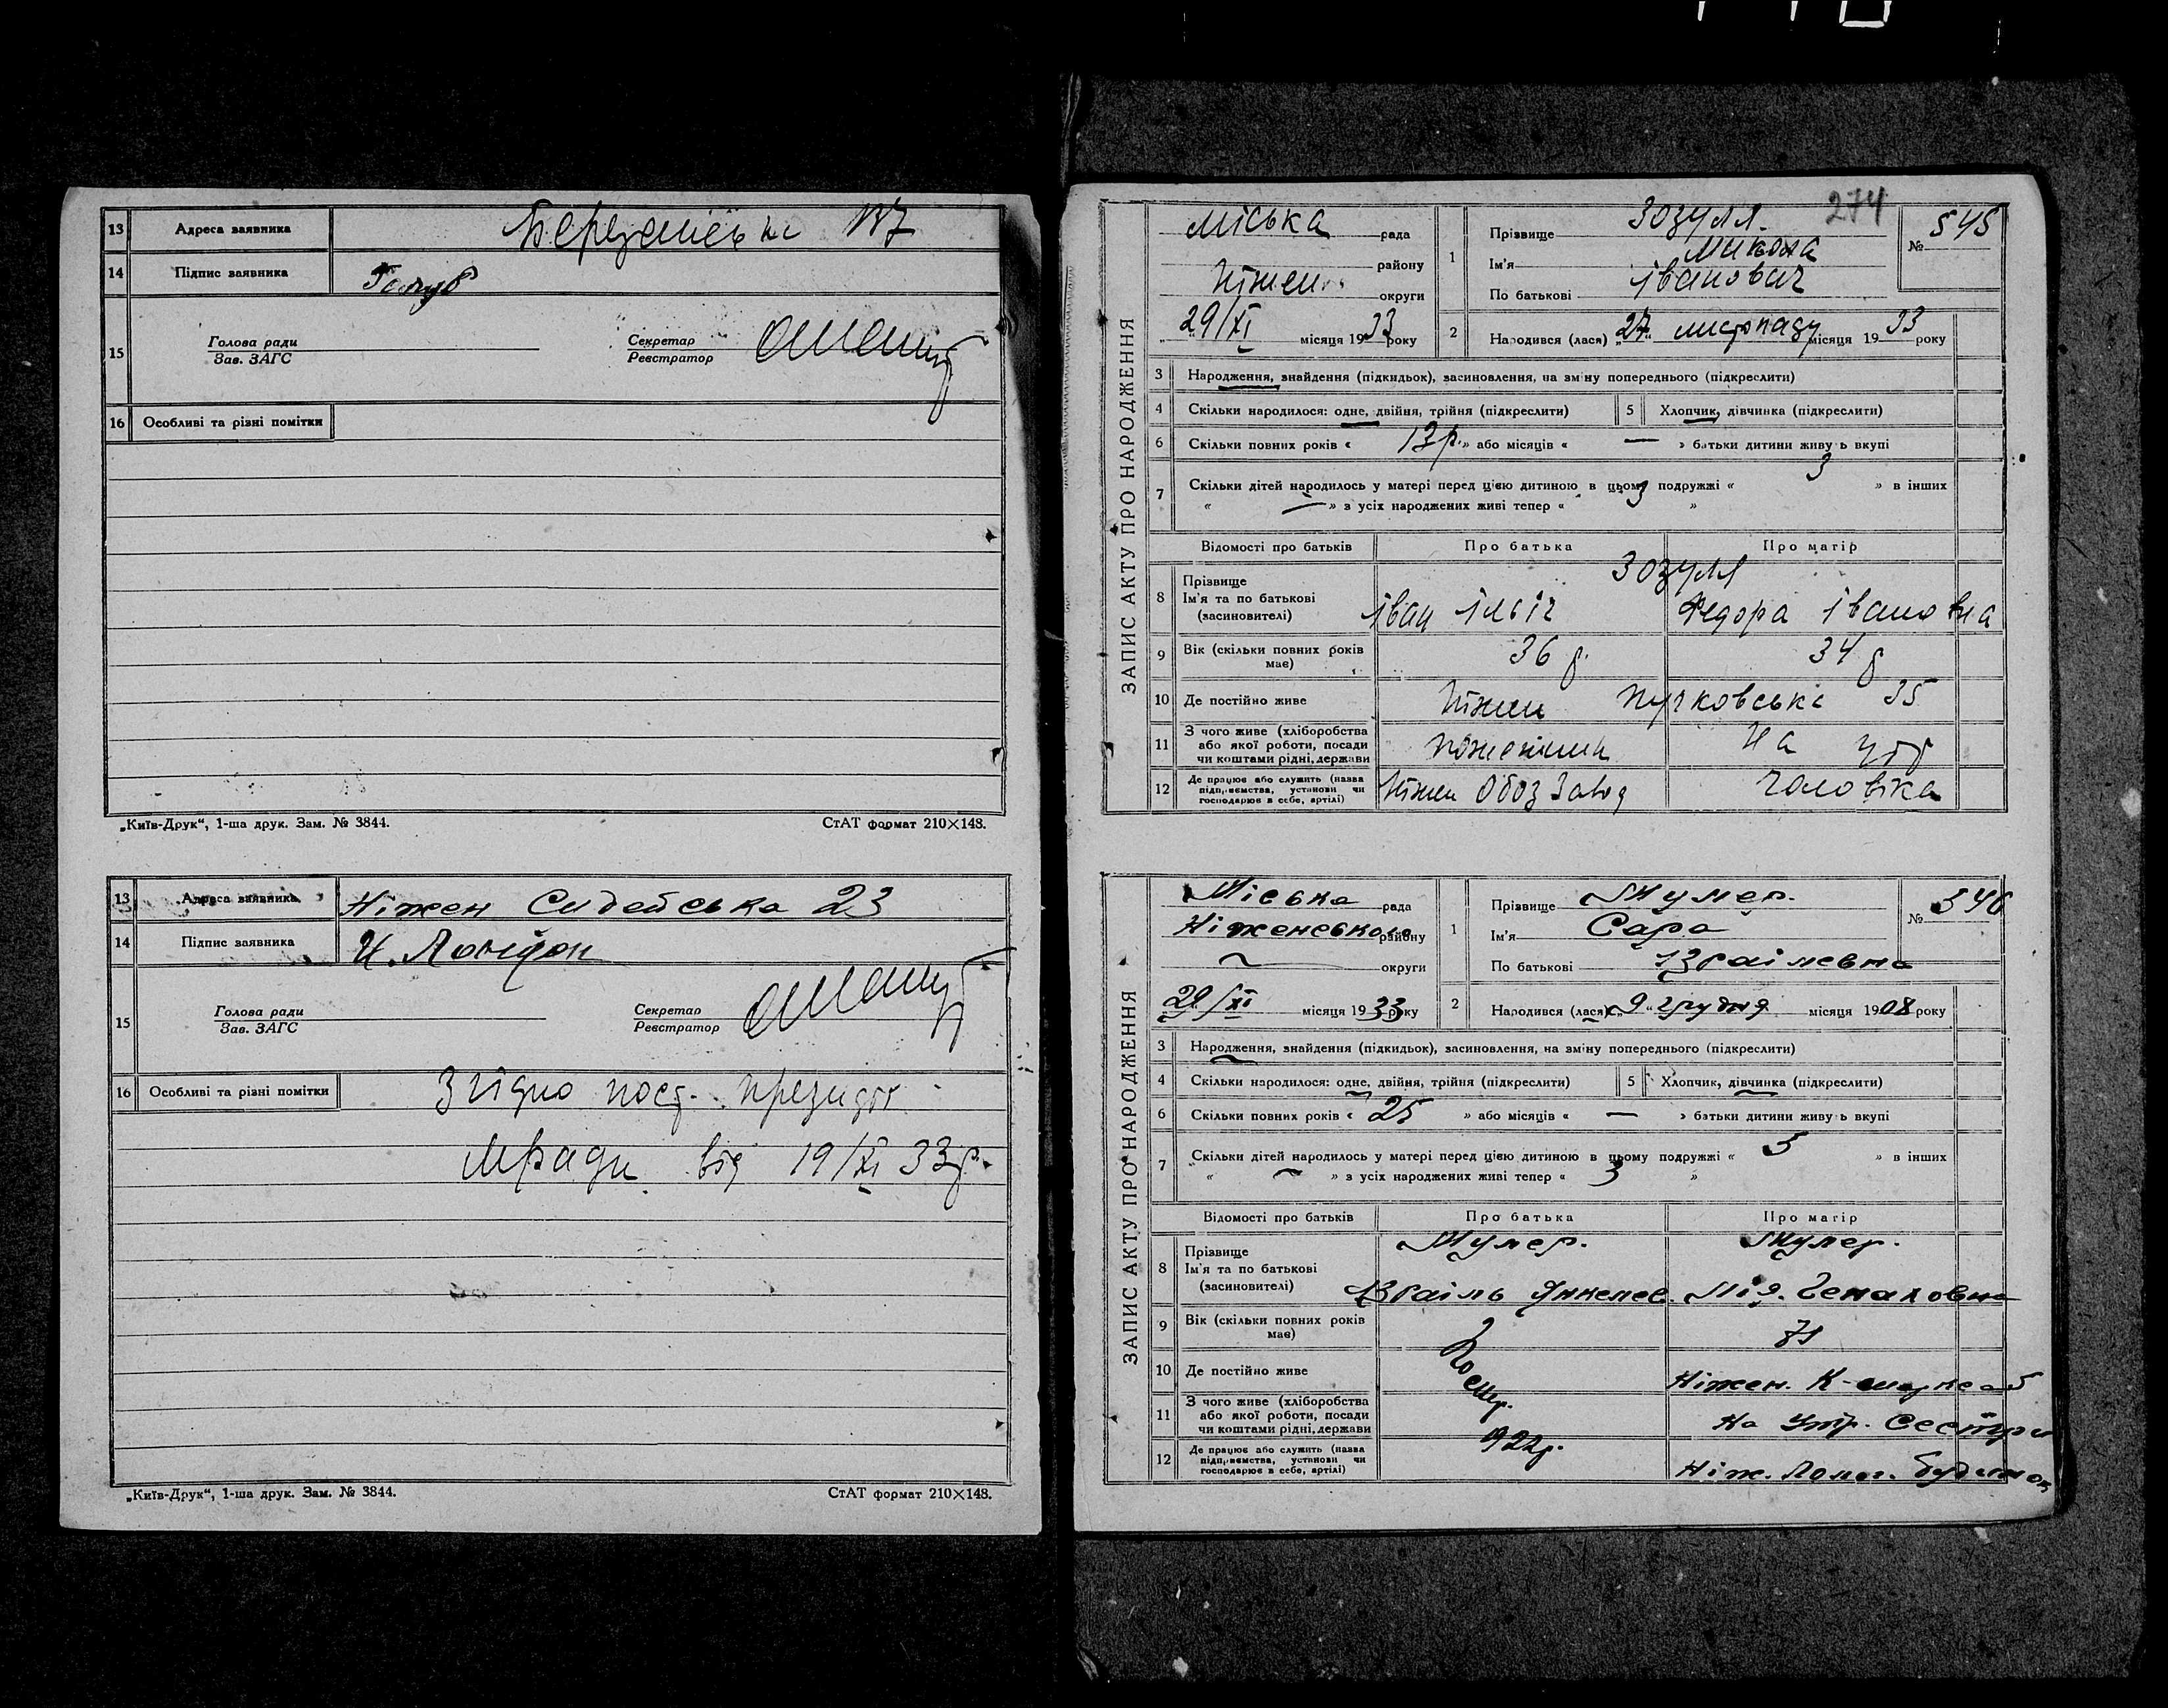 13 Адреса заявника
14 Підпис заявника Голуб
15 Голова ради
Зав. ЗАГС
Секретар
Реєстратор
16 Особливі та різні помітки
„Київ-Друк“, 1-ша друк. Зам. № 3844. СтАТ формат 210×148.
13 Адреса заявника Ніжен 23
14 Підпис заявника
15 Голова ради
Зав. ЗАГС
Секретар
Реєстратор
16 Особливі та різні помітки Згідно пост. президії
мради від 19/XI 33 р.
„Київ-Друк“, 1-ша друк. Зам. № 3844. СтАТ формат 210×148.
274
ЗАПИС АКТУ ПРО НАРОДЖЕННЯ
міська рада
району
Ніжен округи
29/XI місяця 1933 року
1 Прізвище Зозуля.
Ім'я Микола
По батькові Іванович
№ 545
2 Народився (лася) „27“ листопаду місяця 1933 року
3 Народження, знайдення (підкидьок), засиновлення, на зміну попереднього (підкреслити)
4 Скільки народилося: одне, двійня, трійня (підкреслити)
5 Хлопчик, дівчинка (підкреслити)
6 Скільки повних років « 13 р. » або місяців « — » батьки дитини живуть вкупі
7 Скільки дітей народилось у матері перед цією дитиною в цьому подружжі « 3 » в інших
« — » з усіх народжених живі тепер « 3 »
Відомості про батьків Про батька Про матір
8 Прізвище Зозуля
Ім'я та по батькові Іван Ільіч Федора Івановна
(засиновителі)
9 Вік (скільки повних років має) 36 р. 34 р
10 Де постійно живе Ніжен 35
11 З чого живе (хліборобства На утр
або якої роботи, посади
чи коштами рідні, держави
12 Де працює або служить (назва Ніжен Обоз Завод чоловіка
підприємства, установи чи
господарює в себе, артілі)
ЗАПИС АКТУ ПРО НАРОДЖЕННЯ
Міська рада
Ніженського району
округи
29/XI місяця 1933 року
1 Прізвище
Ім'я Сара
По батькові Ізраілевна
№ 546
2 Народився (лася) „9“ грудня місяця 1908 року
3 Народження, знайдення (підкидьок), засиновлення, на зміну попереднього (підкреслити)
4 Скільки народилося: одне, двійня, трійня (підкреслити)
5 Хлопчик, дівчинка (підкреслити)
6 Скільки повних років « 25 » або місяців « — » батьки дитини живуть вкупі
7 Скільки дітей народилось у матері перед цією дитиною в цьому подружжі « 5 » в інших
« » з усіх народжених живі тепер « 3 »
Відомості про батьків Про батька Про матір
8 Прізвище
Ім'я та по батькові Ізраіль Янкелев.
(засиновителі)
9 Вік (скільки повних років має) 71
10 Де постійно живе Помер. Ніжен.
11 З чого живе (хліборобства На утр. Сестри
або якої роботи, посади
чи коштами рідні, держави
922р.
12 Де працює або служить (назва Ніж. Полог. будинок
підприємства, установи чи
господарює в себе, артілі)